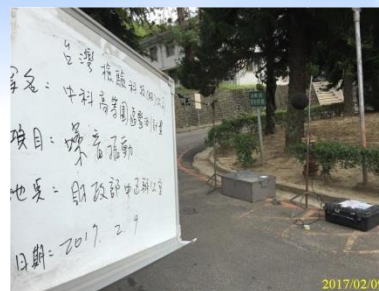 台灣檢驗科技(股)公司
名: 中科高等園區
項目: 噪音振動
地點: 財政部中區辦公室
日期: 2017. 2. 9
2017/02/09